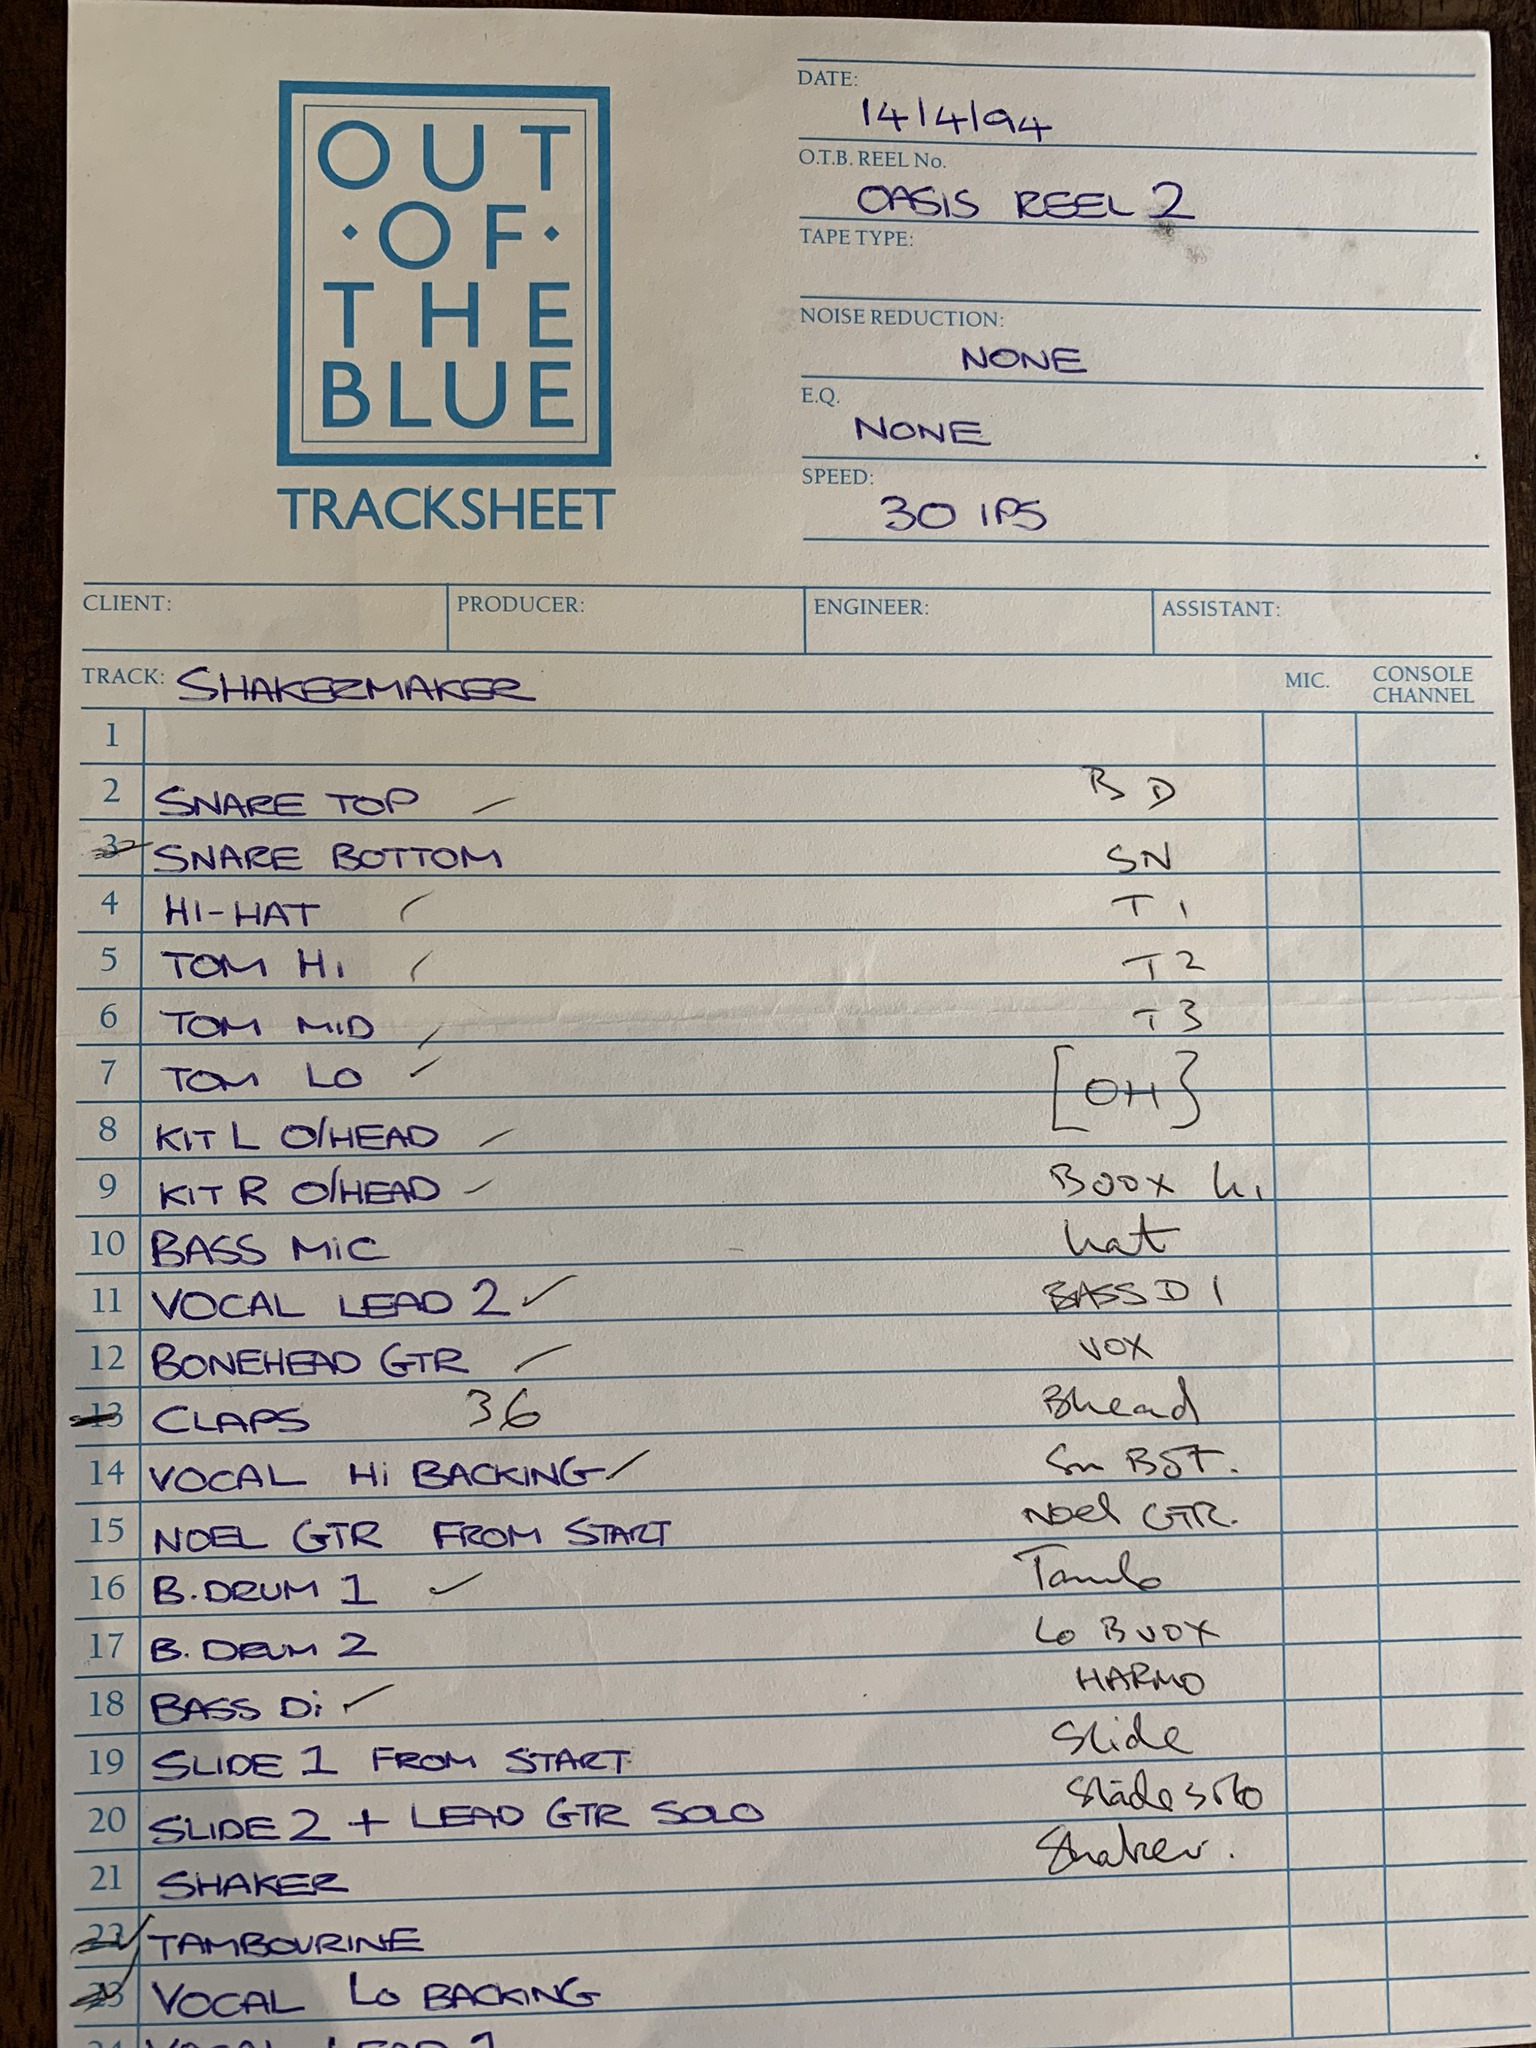 OUT
·OF·
THE
BLUE
TRACKSHEET
DATE:
14/4/94
O.T.B. REEL No.
OASIS REEL 2
TAPE TYPE:
NOISE REDUCTION:
NONE
E.Q.
NONE
SPEED:
30 IPS
CLIENT: PRODUCER: ENGINEER: ASSISTANT:
TRACK: SHAKERMAKER MIC. CONSOLE
CHANNEL
1
2 SNARE TOP BD
3 SNARE BOTTOM SN
4 HI-HAT T1
5 TOM Hi T2
6 TOM MID T3
7 TOM LO [OH}
8 KIT L O/HEAD
9 KIT R O/HEAD BOOX hi
10 BASS MiC hat
11 VOCAL LEAD 2 BASS DI
12 BONEHEAD GTR VOX
13 CLAPS 36 Bhead
14 VOCAL Hi BACKING Sn BOT.
15 NOEL GTR FROM START Noel GTR.
16 B.DRUM 1 Tamb
17 B.DRUM 2 Lo BVOX
18 BASS Di HARMO
19 SLIDE 1 FROM START Slide
20 SLIDE 2 + LEAD GTR SOLO Slide solo
21 SHAKER Shaker.
22 TAMBOURINE
23 VOCAL Lo BACKING
24 VOCAL LEAD 1